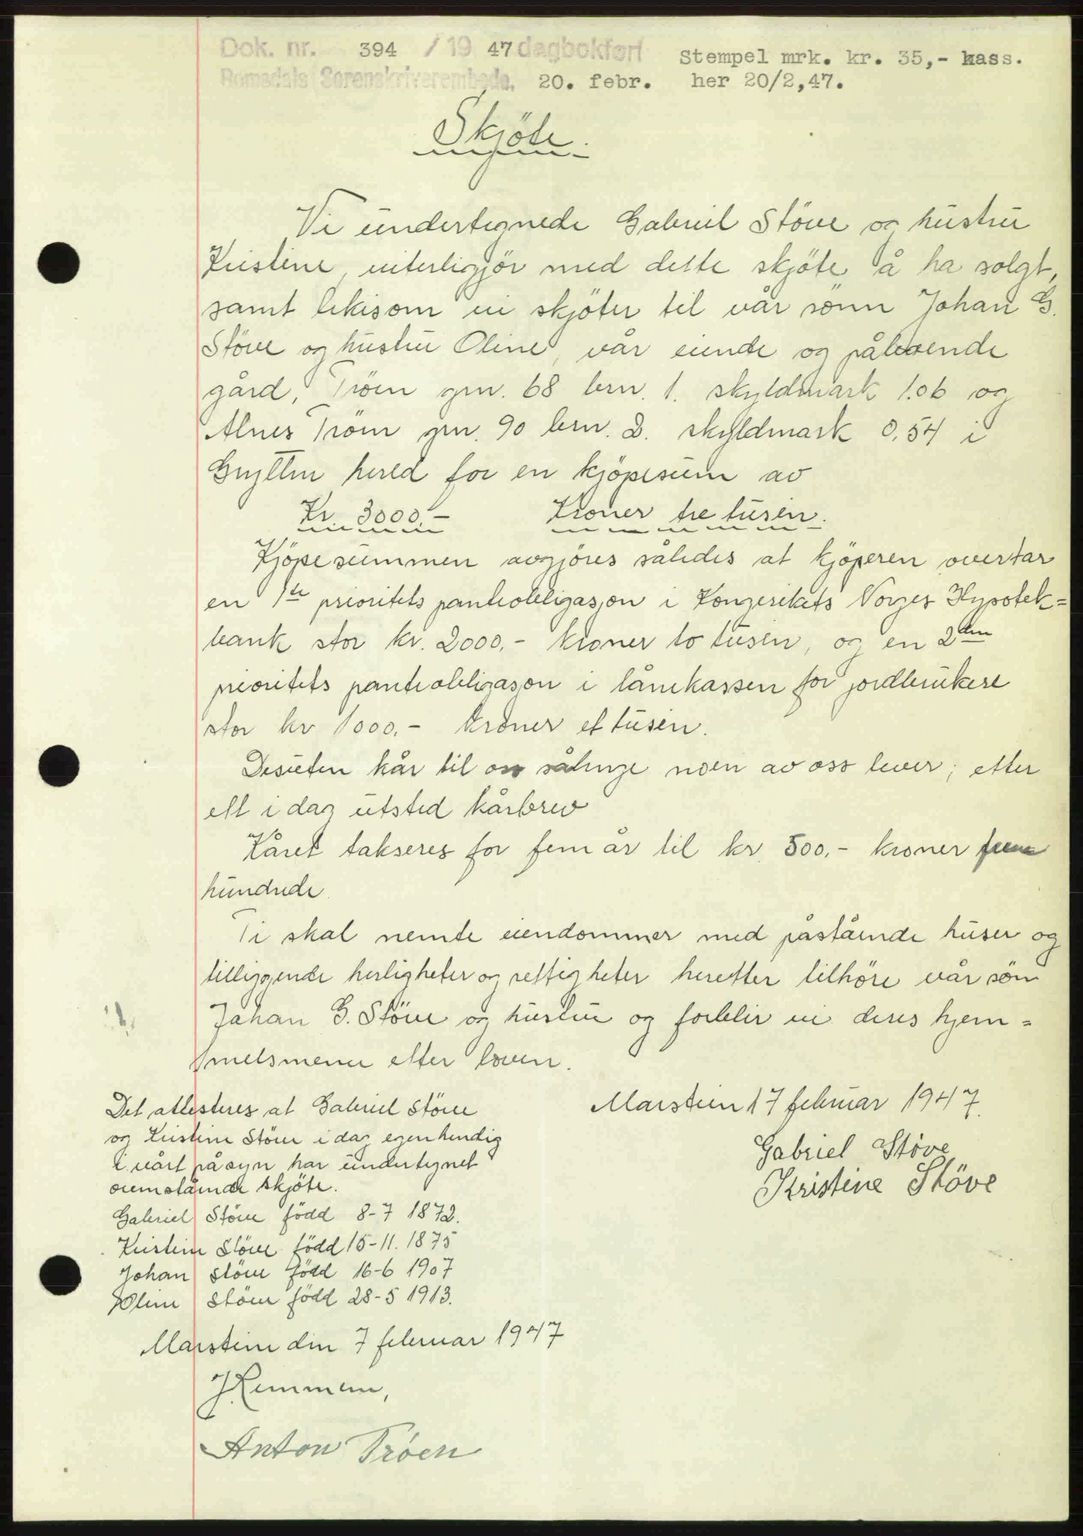 Dok. nr. 394 / 19 47 dagbokført
Romsdals Sorenskriverembede, 20. febr.
Stempel mrk. kr. 35,- kass.
her 20/2,47.
Skjöte.
Vi undertegnede Gabriel Störe og hustru
Kristine, viterligjör med dette skjöte å ha solgt,
samt likisom vi skjöter til vår sönn Johan G.
Störe og hustru Oline, vår eiende og påboende
gård, Tröen grn. 68 brn. 1. skyldmark 1.06 og
Alnes Tröen grn. 90 brn. 2. skyldmark 0,54 i
Grytten hered for en kjöpesum av
Kr. 3000.- Kroner tre tusen.
Kjöpesummen avgjöres således at kjöperen overtar
en 1ste prioritets panteobligasjon i Kongerikets Norges Hypotek=
bank stor kr. 2000.- kroner to tusen, og en 2den
prioritets panteobligasjon i lånekassen for jordbrukere
stor kr 1000.- kroner et tusen.
Desuten kår til oss sålenge noen av oss lever; etter
ett i dag utsted kårbrev
Kåret takseres for fem år til kr 500.- kroner fem
hundrede.
Ti skal nemte eiendommer med påstående huser og
tilliggende herligheter og rettigheter heretter tilhöre vår sön
Johan G. Störe og hustru og forblir vi deres hjem=
melsmenn etter loven.
Marstein 17 februar 1947.
Gabriel Støve
Kristine Støve
Det attesteres at Gabriel Störe
og Kristine Störe i dag egenhendig
i vårt påsyn har undertegnet
ovenstående skjöte.
Gabriel Störe född 8-7 1872.
Kristine Störe född 15-11. 1875
Johan Störe född 16-6 1907
Oline Störe född 28-5 1913.
Marstein den 7 februar 1947
Anton Trøen